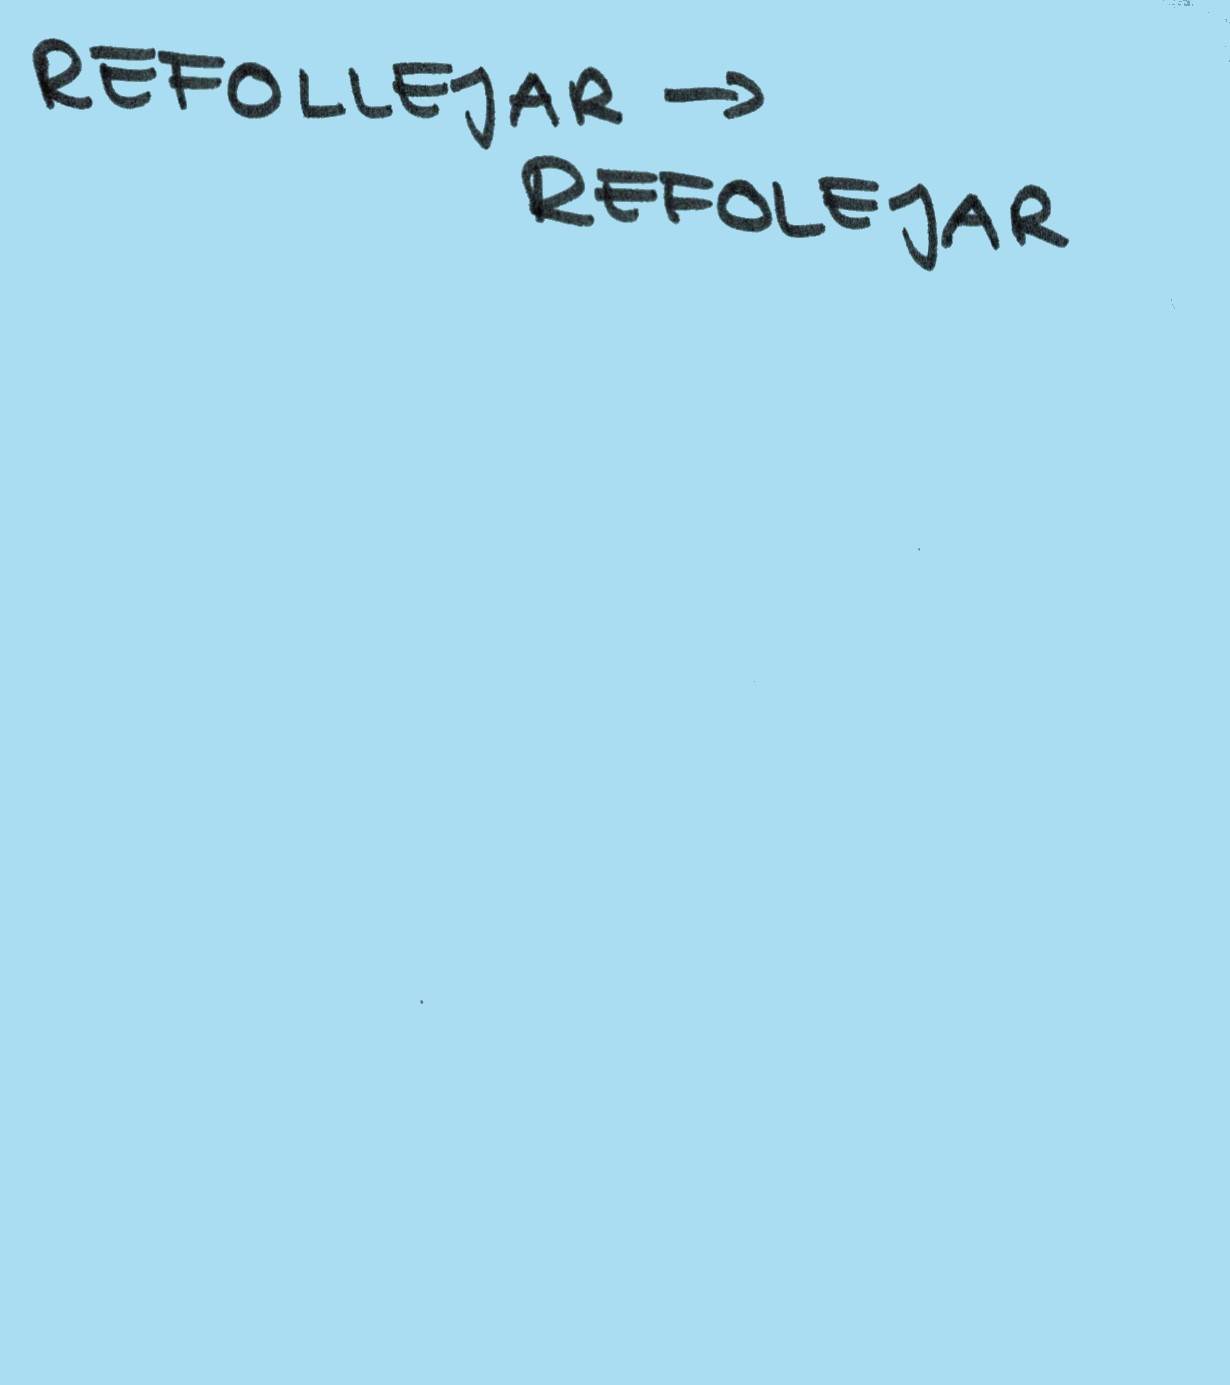 REFOLLEJAR →
REFOLEJAR